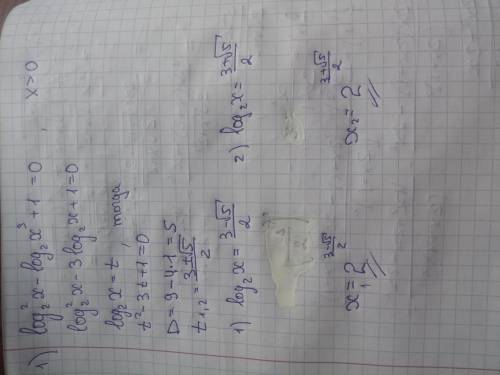 1) log₂²x - log₂x³ + 1 = 0 , x > 0
log₂²x - 3log₂x + 1 = 0
log₂x = t , тогда
t² - 3t + 1 = 0
D = 9 - 4·1 = 5
t₁,₂ = (3±√5)/2
1) log₂x = (3-√5)/2 2) log₂x = (3+√5)/2
x₁ = 2^((3-√5)/2) x₂ = 2^((3+√5)/2)